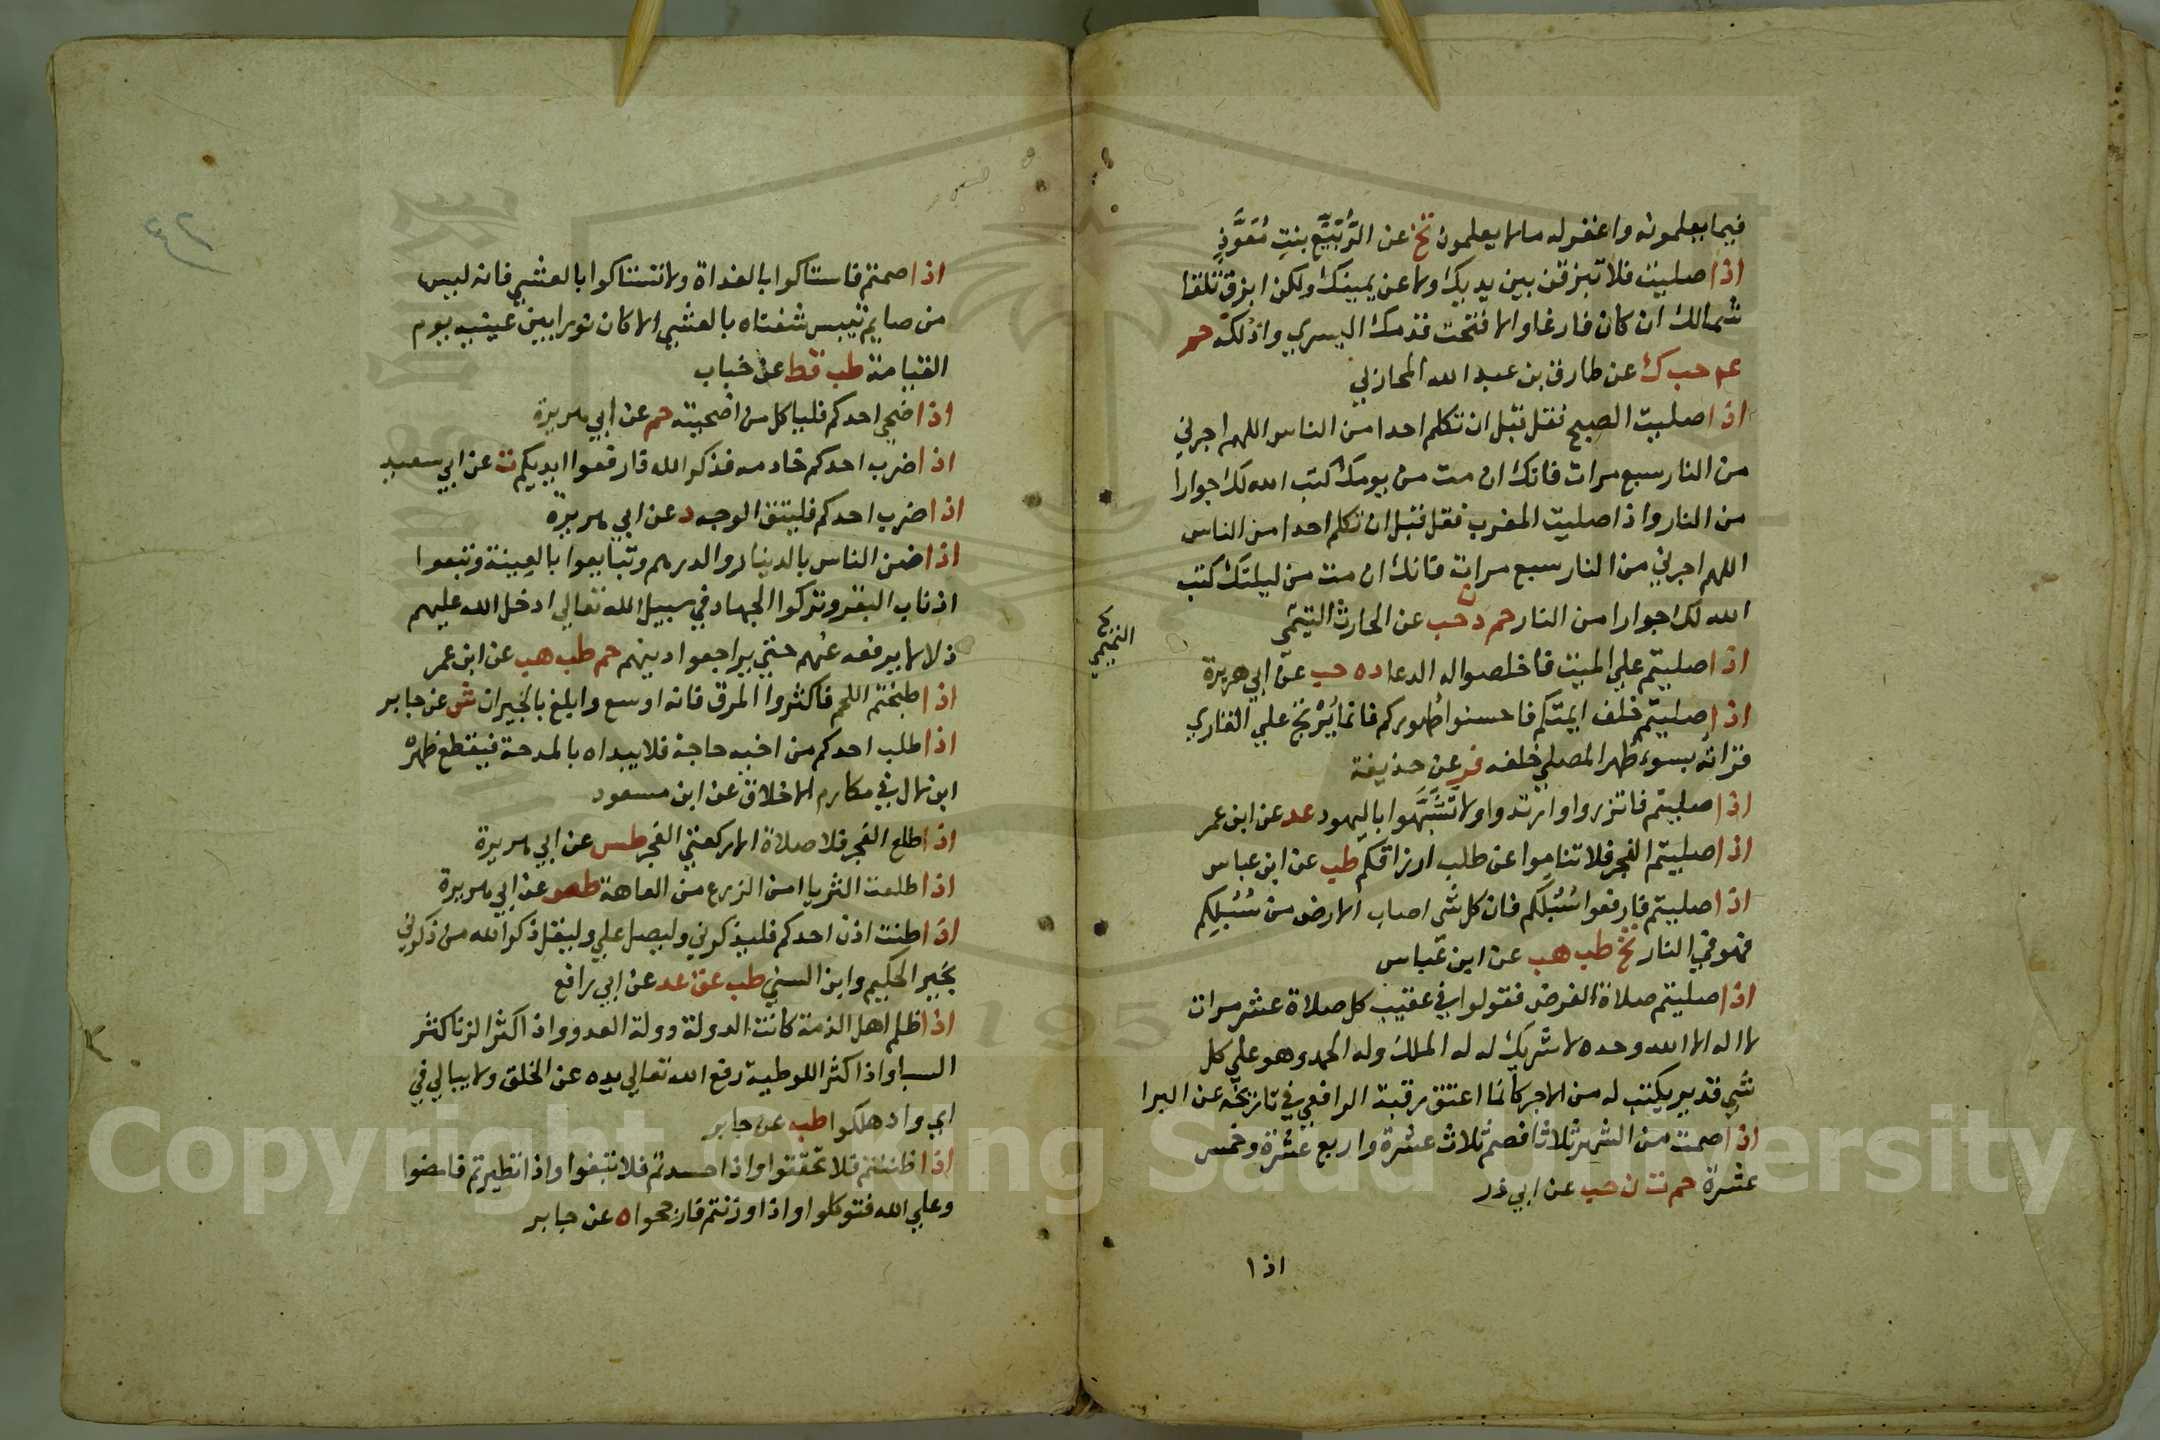 فيما يعلمون واغفر له ما لا يعلمون تخ عن الرُّبَيِّع بنتِ مُعَوِّذٍ
اذا صليت فلا تبزقن بين يديك ولا عن يمينك ولكن ابزق تلقا
شمالك ان كان فارغا والا فتحت قدمك اليسري وادلكه حم
عم حب ك عن طارق بن عبد الله المحاربي
اذا صليت الصبح فقل قبل ان تكلم احدا من الناس اللهم اجرني
من النار سبع مرات فانك ان مت من يومك كتب الله لك جوارا
من النار واذا صليت المغرب فقل قبل ان تكلم احدا من الناس
اللهم اجرني من النار سبع مرات فانك ان مت من ليلتك كتب
الله لك جوارا من النار حم د ن حب عن الحارث التيمي
التميمي
اذا صليتم علي الميت فاخلصوا له الدعا د ه حب عن ابي هريرة
اذا صليتم خلف ايمتكم فاحسنوا طهوركم فانما يُرْتج علي القاري
قراته بسوء طهر المصلي خلفه فر عن حذيفة
اذا صليتم فاتزروا وارتدوا ولا تَشَبَّهوا باليهود عد عن ابن عمر
اذا صليتم الفجر فلا تناموا عن طلب ارزاقكم طب عن ابن عباس
اذا صليتم فارفعوا سُبُلكم فان كل شي اصاب الارض من سُبُلِكم
فهو في النار تخ طب هب عن ابن عباس
اذا صليتم صلاة الفرض فقولوا في عقيب كل صلاة عشر مرات
لا اله الا الله وحده لا شريك له له الملك وله الحمد وهو علي كل
شي قدير يكتب له من الاجر كانما اعتق رقبة الرافعي في تاريخه عن البرا
اذا صمت من الشهر ثلاثا فصم ثلاث عشرة واربع عشرة وخمس
عشرة حم ت ن حب عن ابي ذر
اذا
اذا صمتم فاستاكوا بالغداة ولا تستاكوا بالعشي فانه ليس
من صايم تيبس شفتاه بالعشي الا كان نورا بين عينيه يوم
القيامة طب قط عن خباب
اذا ضحي احدكم فلياكل من اضحيته حم عن ابي هريرة
اذا ضرب احدكم خادمه فذكر الله فارفعوا ايديكم ت عن ابي سعيد
اذا ضرب احدكم فليتق الوجه د عن ابي هريرة
اذا ضن الناس بالدينار والدرهم وتبايعوا بالعينة وتبعوا
اذناب البقر وتركوا الجهاد في سبيل الله تعالي ادخل الله عليهم
ذلا لا يرفعه عنهم حتي يراجعوا دينهم حم طب هب عن ابن عمر
اذا طبختم اللحم فاكثروا المرق فانه اوسع وابلغ بالجيران ش عن جابر
اذا طلب احدكم من اخيه حاجة فلا يبداه بالمدحة فيقطع ظهره
ابن لال في مكارم الاخلاق عن ابن مسعود
اذا طلع الفجر فلا صلاة الا ركعتي الفجر طس عن ابي هريرة
اذا طلعت الثريا امن الزرع من العاهة طص عن ابي هريرة
اذا طنت اذن احدكم فليذكرني وليصل علي وليقل ذكر الله من ذكرني
بخير الحكيم وابن السني طب عق عد عن ابي رافع
اذا ظلم اهل الذمة كانت الدولة دولة العدو واذا كثر الزنا كثر
السبا واذا كثر اللوطية رفع الله تعالي يده عن الخلق ولا يبالي في
اي واد هلكوا طب عن جابر
اذا ظننتم فلا تحققوا واذا حسدتم فلا تبغوا واذا تطيرتم فامضوا
وعلي الله فتوكلوا واذا وزنتم فارجحوا ه عن جابر
Copyright © King Saud University
1957